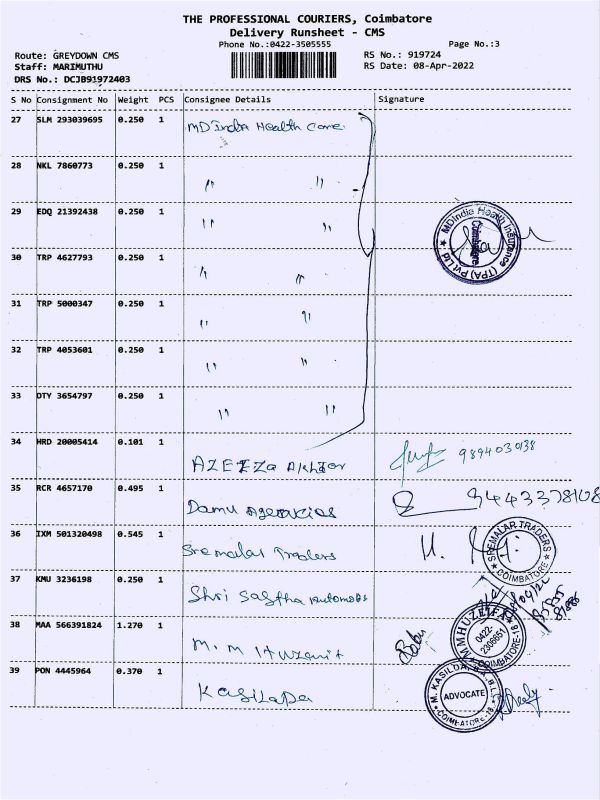 THE PROFESSIONAL COURIERS, Coimbatore
Delivery Runsheet - CMS
Phone No.:0422-3505555 Page No.:3
Route: GREYDOWN CMS RS No.: 919724
Staff: MARIMUTHU RS Date: 08-Apr-2022
DRS No.: DCJB91972403
S No Consignment No Weight PCS Consignee Details Signature
27 SLM 293039695 0.250 1 MDIndia Health Care
28 NKL 7860773 0.250 1 〃 〃
29 EDQ 21392438 0.250 1 〃 〃
MDIndia Health Insurance (TPA) Pvt Ltd Coimbatore
30 TRP 4627793 0.250 1 〃 〃
31 TRP 5000347 0.250 1 〃 〃
32 TRP 4053601 0.250 1 〃 〃
33 OTY 3654797 0.250 1 〃 〃
34 HRD 20005414 0.101 1 AZEEZa Akhtor 9894030138
35 RCR 4657170 0.495 1 Damu Agencies 9443378108
36 IXM 501320498 0.545 1 Sremalar Traders
SREMALAR TRADERS COIMBATORE
37 KMU 3236198 0.250 1 Shri Sastha Automobs
38 MAA 566391824 1.270 1 M.M Huzenit
M M HUZEIFA 0422-2306651 COIMBATORE-18
39 PON 4445964 0.370 1 Kasilada
M. KASILDA, B.A.B.L. ADVOCATE COIMBATORE-18